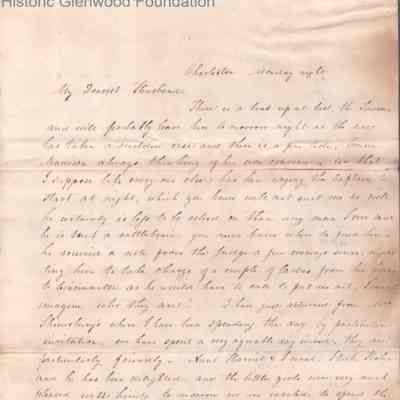 Historic Glenwood Foundation
Charleston Monday night
My Dearest Husband
There is a boat up at last, the
and will probably leave here to morrow night as the river
has taken a sudden rise and there is a fine tide,
always thinking of her own convenience in that
I suppose like every one else, has been urging the captain to
start at night, which you know will not suit me so well
he certainly is less to be relied on than any man I ever saw
he is such a rattlebrain you never know when to
he received a note from the Judge a few evenings since
ting him to take charge of a couple of ladies from his
to as he would have to
imagine who they are? I have just returned from Mrs
Shrewsbury's where I have been spending the day, by particular
invitation, we have spent a very agreeable day indeed, they are
particularly friendly. Aunt Harriet & I went
and he has been delighted, and the little girls were very much
pleased with him, to morrow we are invited to spend the